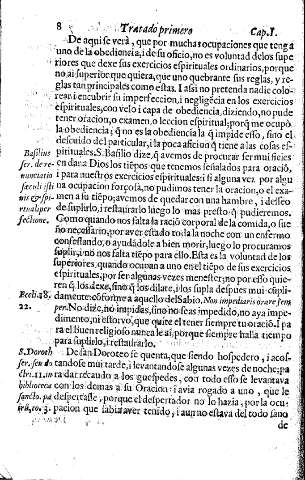 8 Tratado primero Cap. I.
De aqui se verà, que por muchas ocupaciones que tenga
uno de la obediencia, i de su oficio, no es voluntad de los supe
riores que dexe sus exercicios espirituales ordinarios, porque
no ai superior que quiera, que uno quebrante sus reglas, y re-
glas tan principales como estas. I assi no pretenda nadie colo-
rear i encubrir su imperfeccion, i negligēcia en los exercicios
espirituales, con velo i capa de obediencia, diziendo, no pude
tener oracion, o examen, o leccion espiritual; porq̄ me ocupò
la obediencia; q̄ no es la obediencia la q̄ impide esso, sino el
descuido del particular, i la poca aficion q̄ tiene a las cosas es-
pirituales. S. Basilio dize, q̄ avemos de procurar ser mui fieles
en dar a Dios los tiēpos que tenemos señalados para oraciō,
i para nuestros exercicios espirituales: i si alguna vez por alguna
ocupacion forçosa, no pudimos tener la oracion, o el exa-
men a su tiēpo; avemos de quedar con una hambre, i desseo
de suplirlo, i restaurarlo luego lo mas presto q̄ pudieremos.
Como quando nos falta la raciō corporal de la comida, o sue
ño necessario, por aver estado toda la noche con un enfermo
confessando, o ayudādole a bien morir, luego lo procuramos
suplir, i no nos falta tiēpo para ello. Esta es la voluntad de los
superiores, quando ocupan a uno en el tiēpo de sus exercicios
espirituales, por ser algunas vezes menester; no por esso quie-
ren q̄ los dexe, sino q̄ los dilate, i los supla despues mui cumpli-
damente: conforme a aquello del Sabio, Non impediaris orare sem
per. No dize, no impidas, sino no seas impedido, no aya impe-
dimento, ni estorvo, que quite el tener siempre tu oraciō. I pa
ra el buen religioso nunca le ai, porque siempre halla tiempo
para suplirlo, i restaurarlo.
De san Doroteo se cuenta, que siendo hospedero, i acos-
tandose mui tarde, i levantandose algunas vezes de noche; pa
ra dar recaudo a los guespedes, con todo esso se levantava
con los demas a su Oracion: i avia rogado a uno, que le
despertasse, porque el despertador no lo hazia, por la ocu
pacion que sabia aver tenido, i aun no estava del todo sano
de
Basilius
ser. de re-
nunciatio
sæculi isti
us & spi-
rituali per
fectione.
Eccli. 18.
22.
S. Doroth
bibliotheca
sanctor. pa
trū, to. 3.